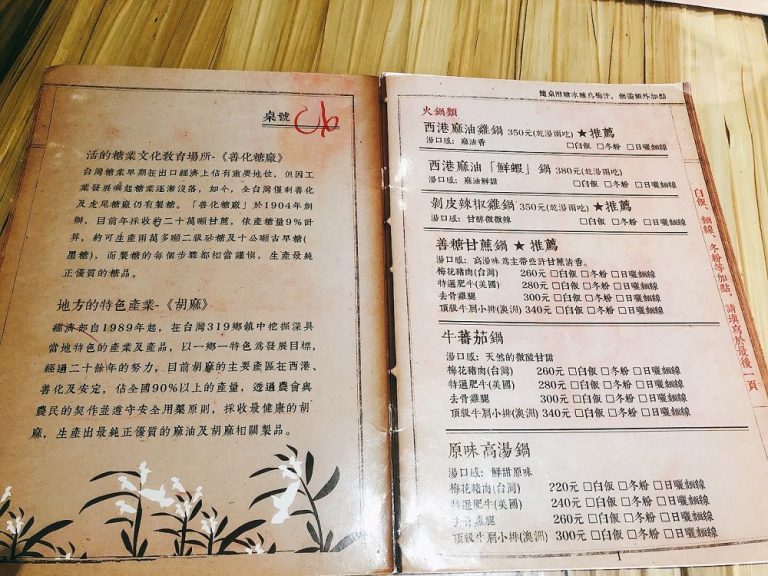 桌號 C6
活的糖業文化教育場所-《善化糖廠》
台灣糖業早期在出口經濟上佔有重要地位，但因工
業發展崛起糖業逐漸沒落，如今，全台灣僅剩善化
及虎尾糖廠仍有製糖。「善化糖廠」於1904年創
辦，目前年採收約二十萬噸甘蔗，依產糖量9%計
算，約可生產兩萬多噸二級砂糖及十公噸古早糖(
黑糖)，而製糖的每個步驟都相當謹慎，生產最純
正優質的糖品。
地方的特色產業-《胡麻》
經濟部自1989年起，在台灣319鄉鎮中挖掘深具
當地特色的產業及產品，以一鄉一特色為發展目標，
經過二十餘年的努力，目前胡麻的主要產區在西港、
善化及安定，佔全國90%以上的產量，透過農會與
農民的契作並遵守安全用藥原則，採收最健康的胡
麻，生產出最純正優質的麻油及胡麻相關製品。
隨桌附糖冰糖烏梅汁，無需額外加點
火鍋類
西港麻油雞鍋 350元(乾湯兩吃) ★推薦
湯口感：麻油香 □白飯 □冬粉 □日曬麵線
西港麻油「鮮蝦」鍋 380元(乾湯兩吃)
湯口感：麻油鮮甜 □白飯 □冬粉 □日曬麵線
剝皮辣椒雞鍋 350元(乾湯兩吃) ★推薦
湯口感：甘醇微微辣 □白飯 □冬粉 □日曬麵線
善糖甘蔗鍋 ★ 推薦
湯口感：高湯味為主帶些許甘蔗清香。
梅花豬肉(台灣) 260元 □白飯 □冬粉 □日曬麵線
特選肥牛(美國) 280元 □白飯 □冬粉 □日曬麵線
去骨雞腿 300元 □白飯 □冬粉 □日曬麵線
頂級牛肩小排(澳洲) 340元 □白飯 □冬粉 □日曬麵線
牛蕃茄鍋
湯口感：天然的微酸甘甜
梅花豬肉(台灣) 260元 □白飯 □冬粉 □日曬麵線
特選肥牛(美國) 280元 □白飯 □冬粉 □日曬麵線
去骨雞腿 300元 □白飯 □冬粉 □日曬麵線
頂級牛肩小排(澳洲) 340元 □白飯 □冬粉 □日曬麵線
原味高湯鍋
湯口感：鮮甜原味
梅花豬肉(台灣) 220元 □白飯 □冬粉 □日曬麵線
特選肥牛(美國) 240元 □白飯 □冬粉 □日曬麵線
去骨雞腿 260元 □白飯 □冬粉 □日曬麵線
頂級牛肩小排(澳洲) 300元 □白飯 □冬粉 □日曬麵線
白飯、麵線、冬粉等加點，請填寫於最後一頁